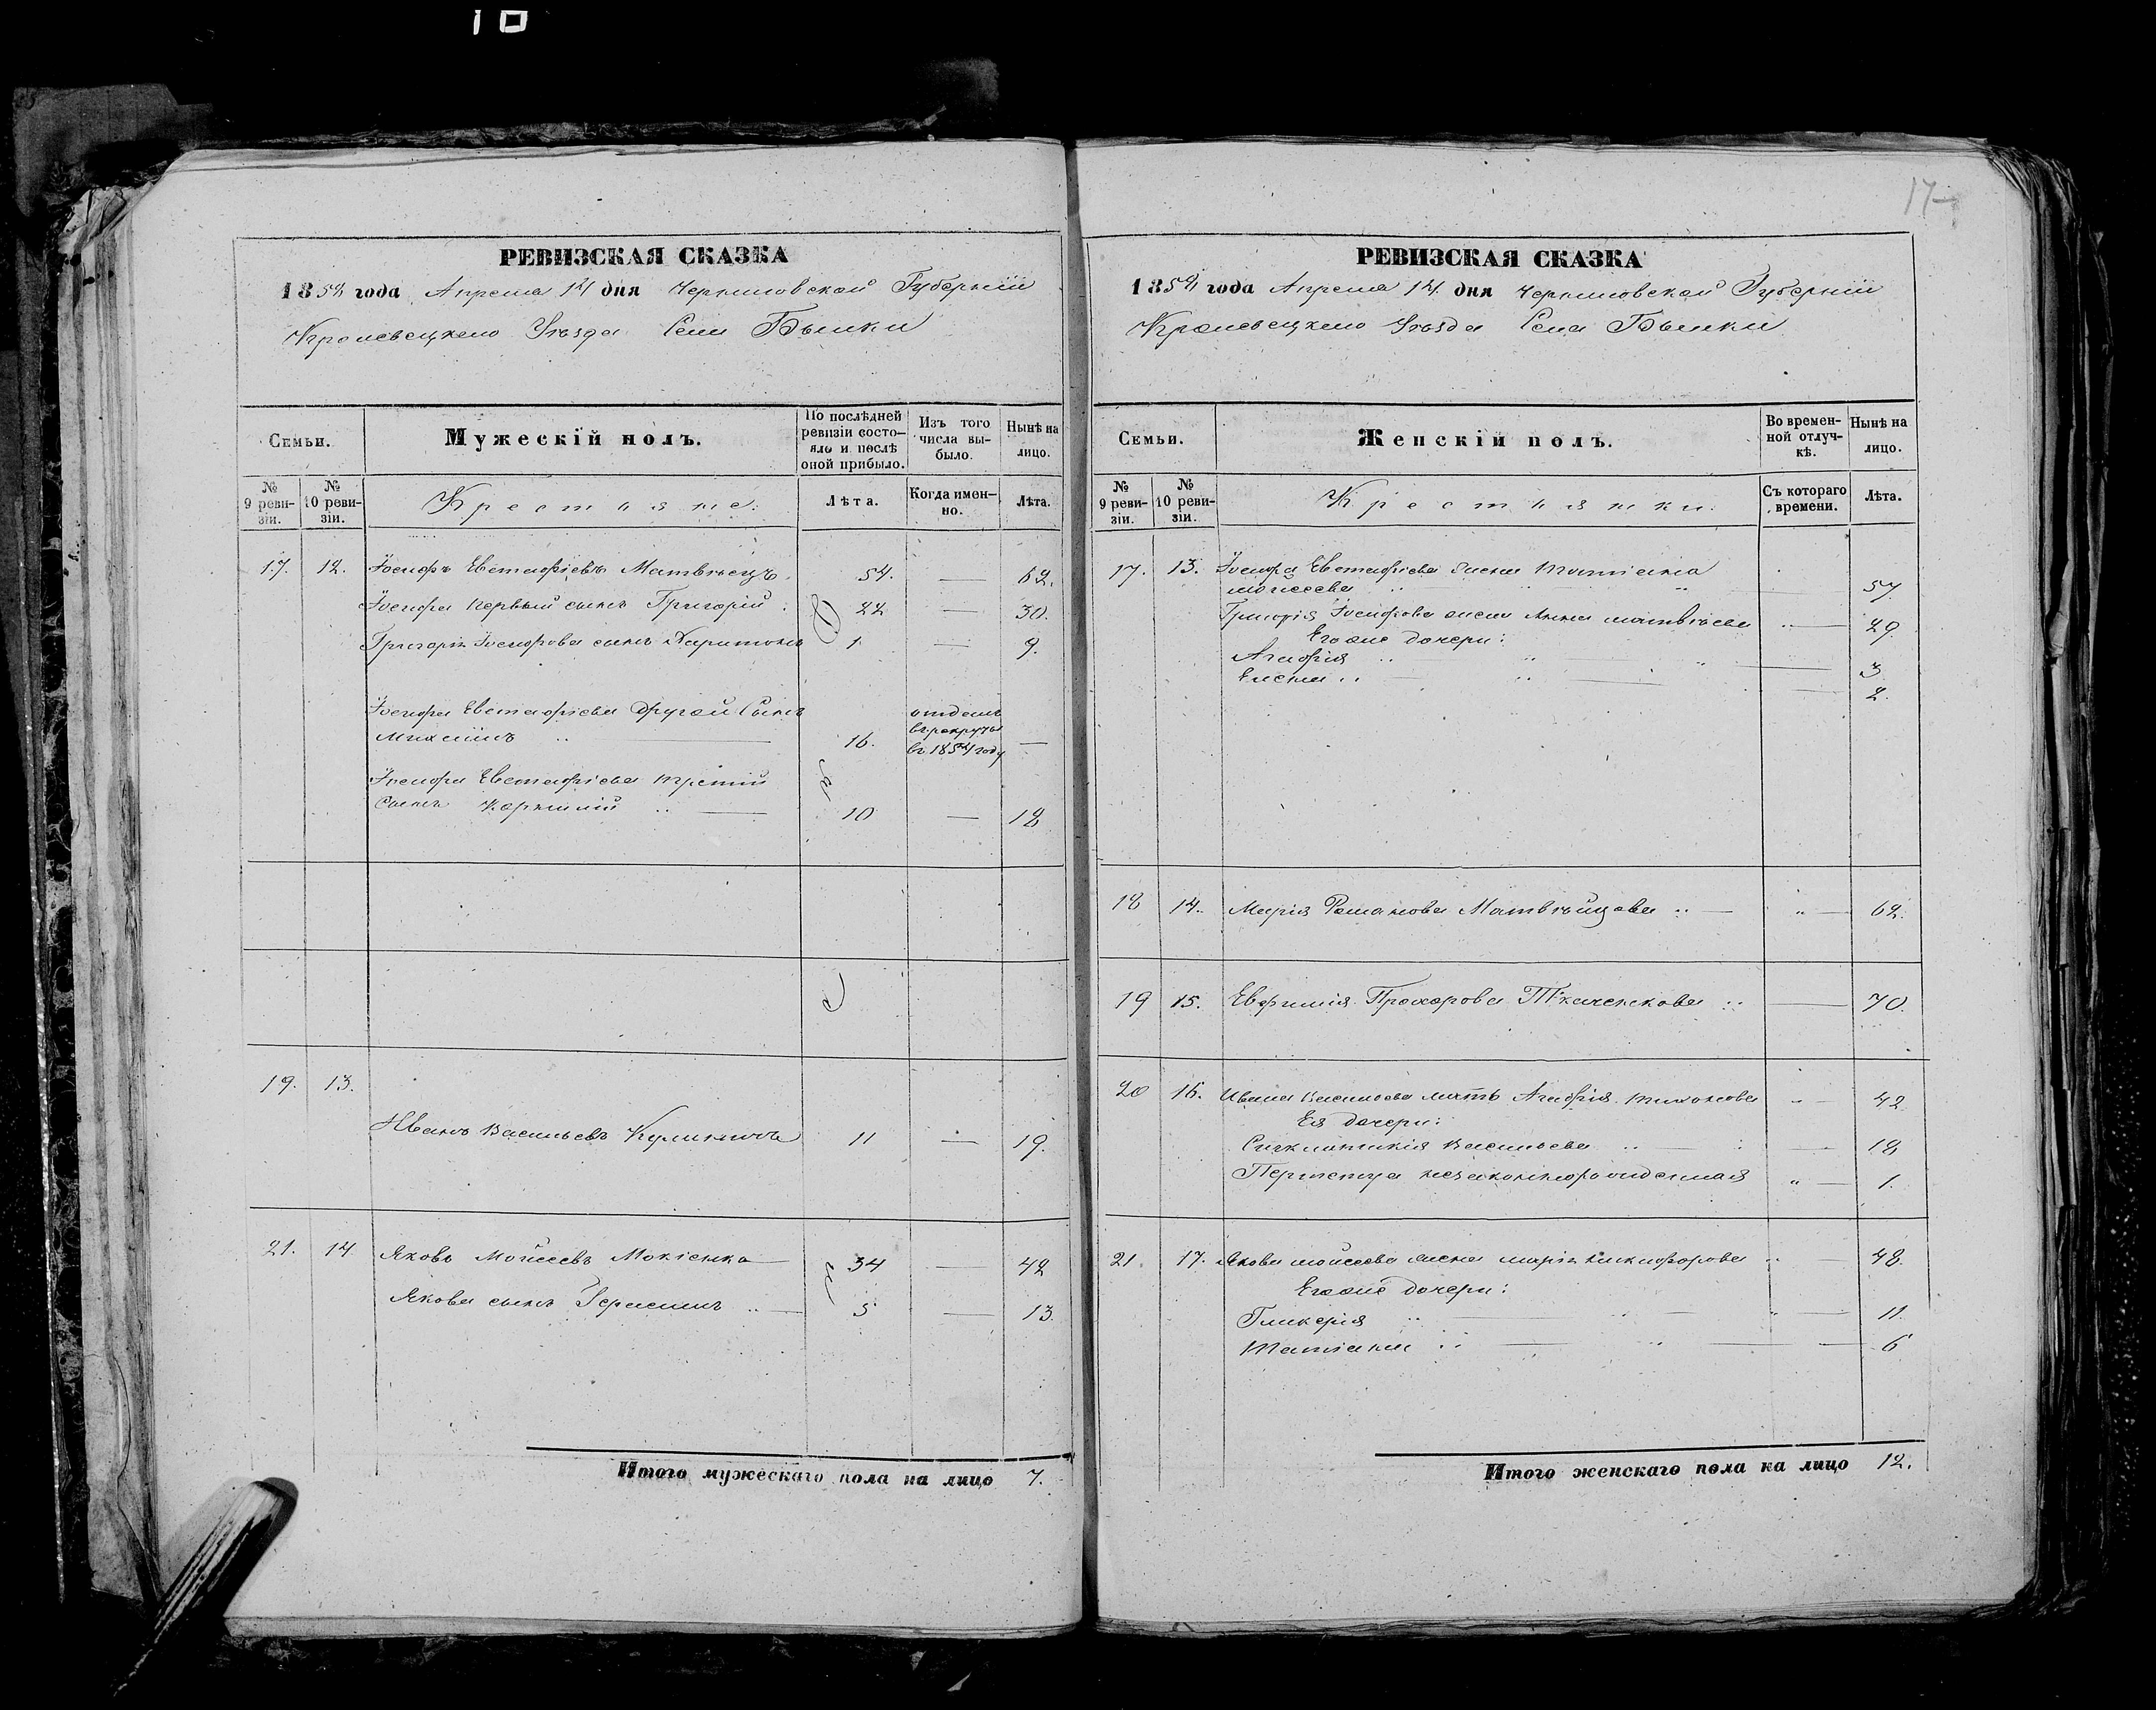 10
РЕВИЗСКАЯ СКАЗКА
1858 года Апреля 14 дня Черниговской Губернии
Кролевецкаго Уѣзда Села Быстрики
Семьи.
Мужескій полъ.
По послѣдней ревизіи состо-
яло и послѣ оной прибыло.
Изъ того числа вы-
было.
Нынѣ на лицо.
№ 9 реви-
зіи.
№ 10 реви-
зіи.
Крестьяне.
Лѣта.
Когда имен-
но.
Лѣта.
17. 12. Іосифъ Евстафіевъ Матвѣецъ. 54. — 62.
Іосифа первый сынъ Григорій 22 — 30.
Григорія Іосифова сынъ Харитонъ 1 — 9.
Іосифа Евстафіева другой Сынъ
Михаилъ 16. отданъ
въ рекруты
въ 1854 году —
Іосифа Евстафіева третій
Сынъ Корнилій 10 — 18
19. 13.
Иванъ Васильевъ Куличичъ 11 — 19.
21. 14 Яковъ Мойсеевъ Мокіенко 34 — 42
Якова сынъ Герасимъ 5 — 13.
Итого мужескаго пола на лицо 7.
17
РЕВИЗСКАЯ СКАЗКА
1858 года Апреля 14. дня Черниговской Губерніи
Кролевецкаго Уѣзда Села
Семьи.
Женскій полъ.
Во времен-
ной отлуч-
кѣ.
Нынѣ на лицо.
№ 9 реви-
зіи.
№ 10 реви-
зіи.
Крестьянки.
Съ котораго времени.
Лѣта.
17. 13. Іосифа Евстафіева жена Татіана
мойсеева — 57
Григорія Іосифова жена Анна матвѣева — 29.
Егоже дочери:
Агафія — 3
Елена — 2.
18 14. Марія Романова Матвѣйцова — 62.
19 15. Евфимія Прохорова Ткаченкова — 70.
20 16. Ивана Васильева мать Агафія тихонова — 42
Ея дочери:
Синклитикія Васильева — 18
Перпетуа незаконнорожденная — 1.
21. 17. Якова мойсеева жена марія никифорова — 48.
Егоже дочери:
Гликерія — 11.
Татіана — 6
Итого женскаго пола на лицо 12.